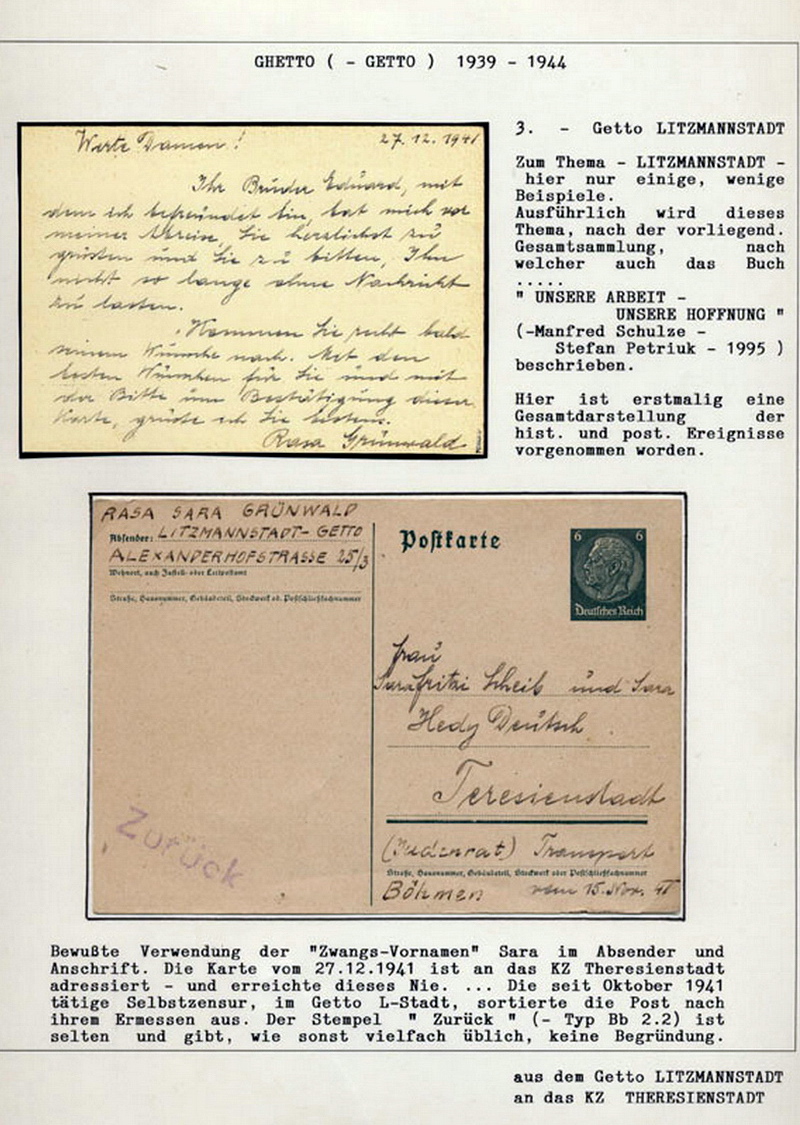 GHETTO ( - GETTO ) 1939 - 1944
Werte Damen!
27.12.1941
Ihr Bruder Eduard, mit
dem ich befreundet bin, bat mich vor
meiner Abreise, Sie herzlichst zu
grüssen und Sie zu bitten, Ihn
nicht so lange ohne Nachricht
zu lassen.
Kommen Sie recht bald
seinem Wunsche nach. Mit den
besten Wünschen für Sie und mit
der Bitte um Bestätigung dieser
Karte, grüsse ich Sie bestens.
Rasa Grünwald
3. - Getto LITZMANNSTADT
Zum Thema - LITZMANNSTADT -
hier nur einige, wenige
Beispiele.
Ausführlich wird dieses
Thema, nach der vorliegend.
Gesamtsammlung, nach
welcher auch das Buch
.....
" UNSERE ARBEIT -
UNSERE HOFFNUNG "
(-Manfred Schulze -
Stefan Petriuk - 1995 )
beschrieben.
Hier ist erstmalig eine
Gesamtdarstellung der
hist. und post. Ereignisse
vorgenommen worden.
RASA SARA GRÜNWALD
Absender: LITZMANNSTADT- GETTO
ALEXANDERHOFSTRASSE 25/3
Wohnort, auch Zustell- oder Leitpostamt
Straße, Hausnummer, Gebäudeteil, Stockwerk od. Postschließfachnummer
Postkarte
6 6
Deutsches Reich
Frau
Sara Fritzi Scheib und Sara
Hedy Deutsch
Teresienstadt
(Judenrat) Transport
Straße, Hausnummer, Gebäudeteil, Stockwerk oder Postschließfachnummer
Böhmen vom 15. Nov. 41
Zurück
Bewußte Verwendung der "Zwangs-Vornamen" Sara im Absender und
Anschrift. Die Karte vom 27.12.1941 ist an das KZ Theresienstadt
adressiert - und erreichte dieses Nie. ... Die seit Oktober 1941
tätige Selbstzensur, im Getto L-Stadt, sortierte die Post nach
ihrem Ermessen aus. Der Stempel " Zurück " (- Typ Bb 2.2) ist
selten und gibt, wie sonst vielfach üblich, keine Begründung.
aus dem Getto LITZMANNSTADT
an das KZ THERESIENSTADT